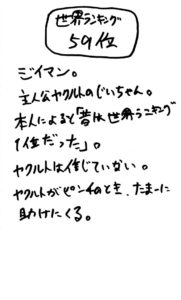 世界ランキング
59位
ジイマン。
主人公ヤクルトのじいちゃん。
本人によると「昔は世界ランキング
1位だった」。
ヤクルトは信じていない。
ヤクルトがピンチのとき、たまーに
助けにくる。